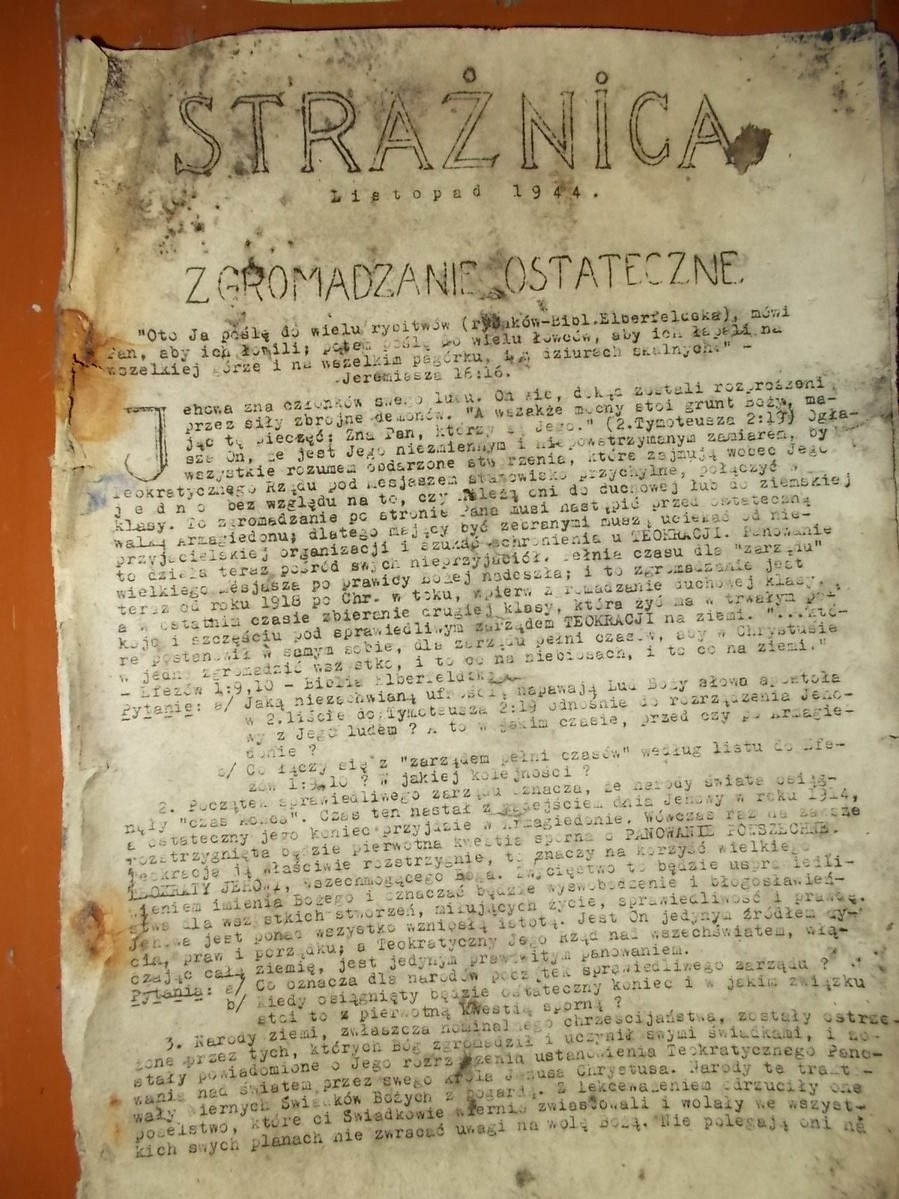 STRAŻNICA
Listopad 1944.
ZGROMADZANIE OSTATECZNE
"Oto Ja poślę do wielu rybitwów (rybaków-Bibl.Elberfelcska), mówi
Pan, aby ich łowili; potem poślę do wielu łowców, aby ich łapali na
wszelkiej górze i na wszelkim pagórku, i w dziurach skalnych." -
-Jeremiasza 16:16.
Jehowa zna członków swego ludu. On wie, dokąd zostali rozproszeni
przez siły zbrojne demonów. "A wszakże mocny stoi grunt Boży, ma-
jąc tę pieczęć: Zna Pan, którzy są Jego." (2.Tymoteusza 2:19) Ogła-
sza On, że jest Jego niezmiennym i niepowstrzymanym zamiarem, by
wszystkie rozumem obdarzone stworzenia, które zajmują wobec Jego
Teokratycznego Rządu pod Mesjaszem stanowisko przychylne, połączyć w
j e d n o bez względu na to, czy należą oni do duchowej lub do ziemskiej
klasy. To zgromadzanie po stronie Pana musi nastąpić przed ostateczną
walką Armagiedonu; dlatego mający być zebranymi muszą uciekać od nie-
przyjacielskiej organizacji i szukać schronienia u TEOKRACJI. Panowanie
to działa teraz pośród swych nieprzyjaciół. Pełnia czasu dla "zarządu"
wielkiego Mesjasza po prawicy Bożej nadeszła; i to zgromadzanie jest
teraz od roku 1918 po Chr. w toku, wpierw zgromadzanie duchowej klasy,
a w ostatnim czasie zbieranie drugiej klasy, która żyć ma w trwałym po-
koju i szczęściu pod sprawiedliwym zarządem TEOKRACJI na ziemi. "...któ-
re postanowił w samym sobie, dla zarządu pełni czasów, aby w Chrystusie
w jedno zgromadzić wszystko, i to co na niebiosach, i to co na ziemi."
- Efezów 1:9,10 - Biblia Elberfeldzka.
Pytanie: a/ Jaką niezachwianą ufnością napawają Lud Boży słowa apostoła
w 2.liście do Tymoteusza 2:19 odnośnie do rozrządzenia Jeho-
wy z Jego ludem ? A to w jakim czasie, przed czy po Armagie-
donie ?
b/ Co łączy się z "zarządem pełni czasów" według listu do Efe-
zów 1:9,10 ? W jakiej kolejności ?
2. Początek sprawiedliwego zarządu oznacza, że narody świata osiąg-
nęły "czas końca". Czas ten nastał z nadejściem dnia Jehowy w roku 1914,
a ostateczny jego koniec przyjdzie w Armagiedonie. Wówczas raz na zawsze
rozstrzygnięta będzie pierwotna kwestia sporna o PANOWANIE POWSZECHNE.
Teokracja ją właściwie rozstrzygnie, to znaczy na korzyść wielkiego
TEOKRATY JEHOWY, wszechmogącego Boga. Zwycięstwo to będzie usprawiedli-
wieniem imienia Bożego i oznaczać będzie wyswobodzenie i błogosławień-
stwo dla wszystkich stworzeń, miłujących życie, sprawiedliwość i prawdę.
Jehowa jest ponad wszystko wzniosłą istotą. Jest On jedynym źródłem ży-
cia, praw i porządku; a Teokratyczny Jego Rząd nad wszechświatem, włą-
czając całą ziemię, jest jedynym prawowitym panowaniem.
Pytania: a/ Co oznacza dla narodów początek sprawiedliwego zarządu ?
b/ Kiedy osiągnięty będzie ostateczny koniec i w jakim związku
stoi to z pierwotną kwestią sporną ?
3. Narody ziemi, zwłaszcza nominalnego chrześcijaństwa, zostały ostrze-
żone przez tych, których Bóg zgromadził i uczynił swymi świadkami, i zo-
stały powiadomione o Jego rozrządzeniu ustanowienia Teokratycznego Pano-
wania nad światem przez swego Króla Jezusa Chrystusa. Narody te trakto-
wały wiernych Świadków Bożych z pogardą. Z lekceważeniem odrzuciły one
poselstwo, które ci Świadkowie wiernie zwiastowali i wolały we wszyst-
kich swych planach nie zwracać uwagi na wolę Bożą. Nie polegają oni na